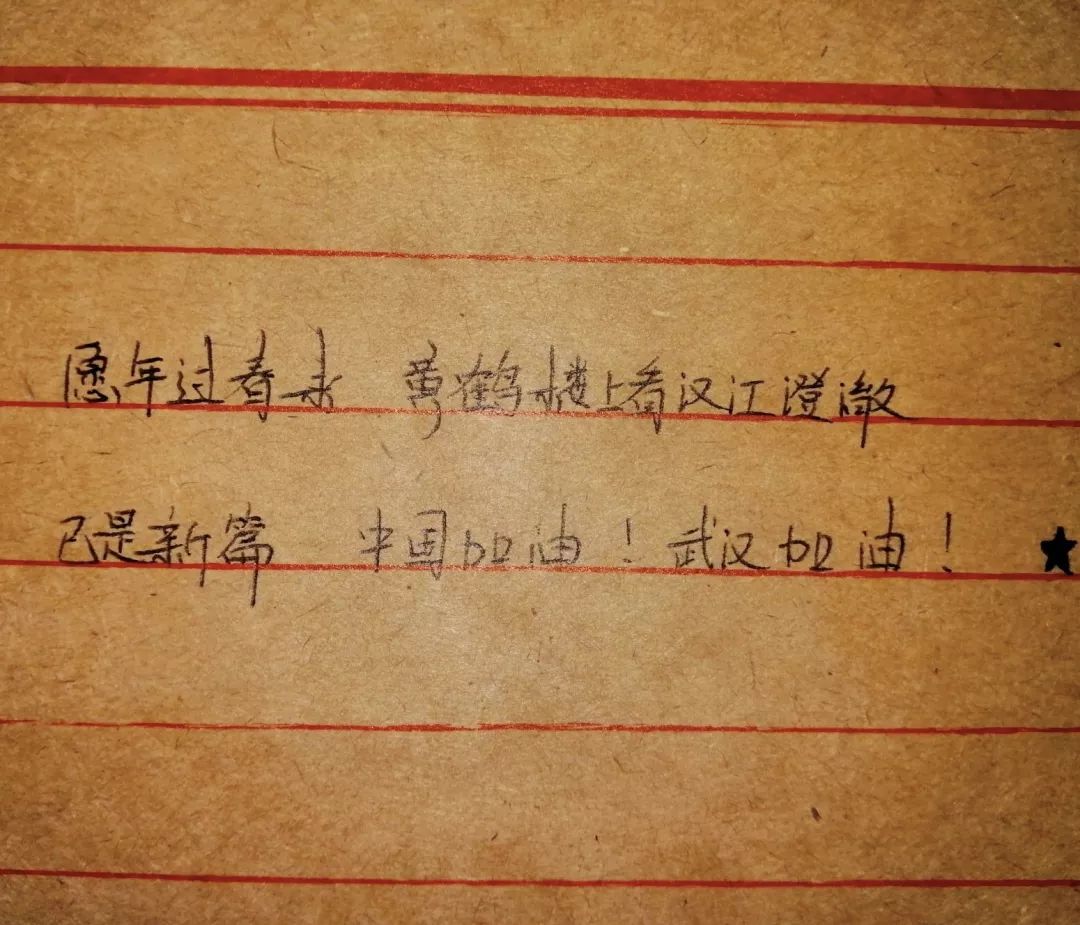 愿年过春来 黄鹤楼上看汉江澄澈
已是新篇 中国加油！武汉加油！★